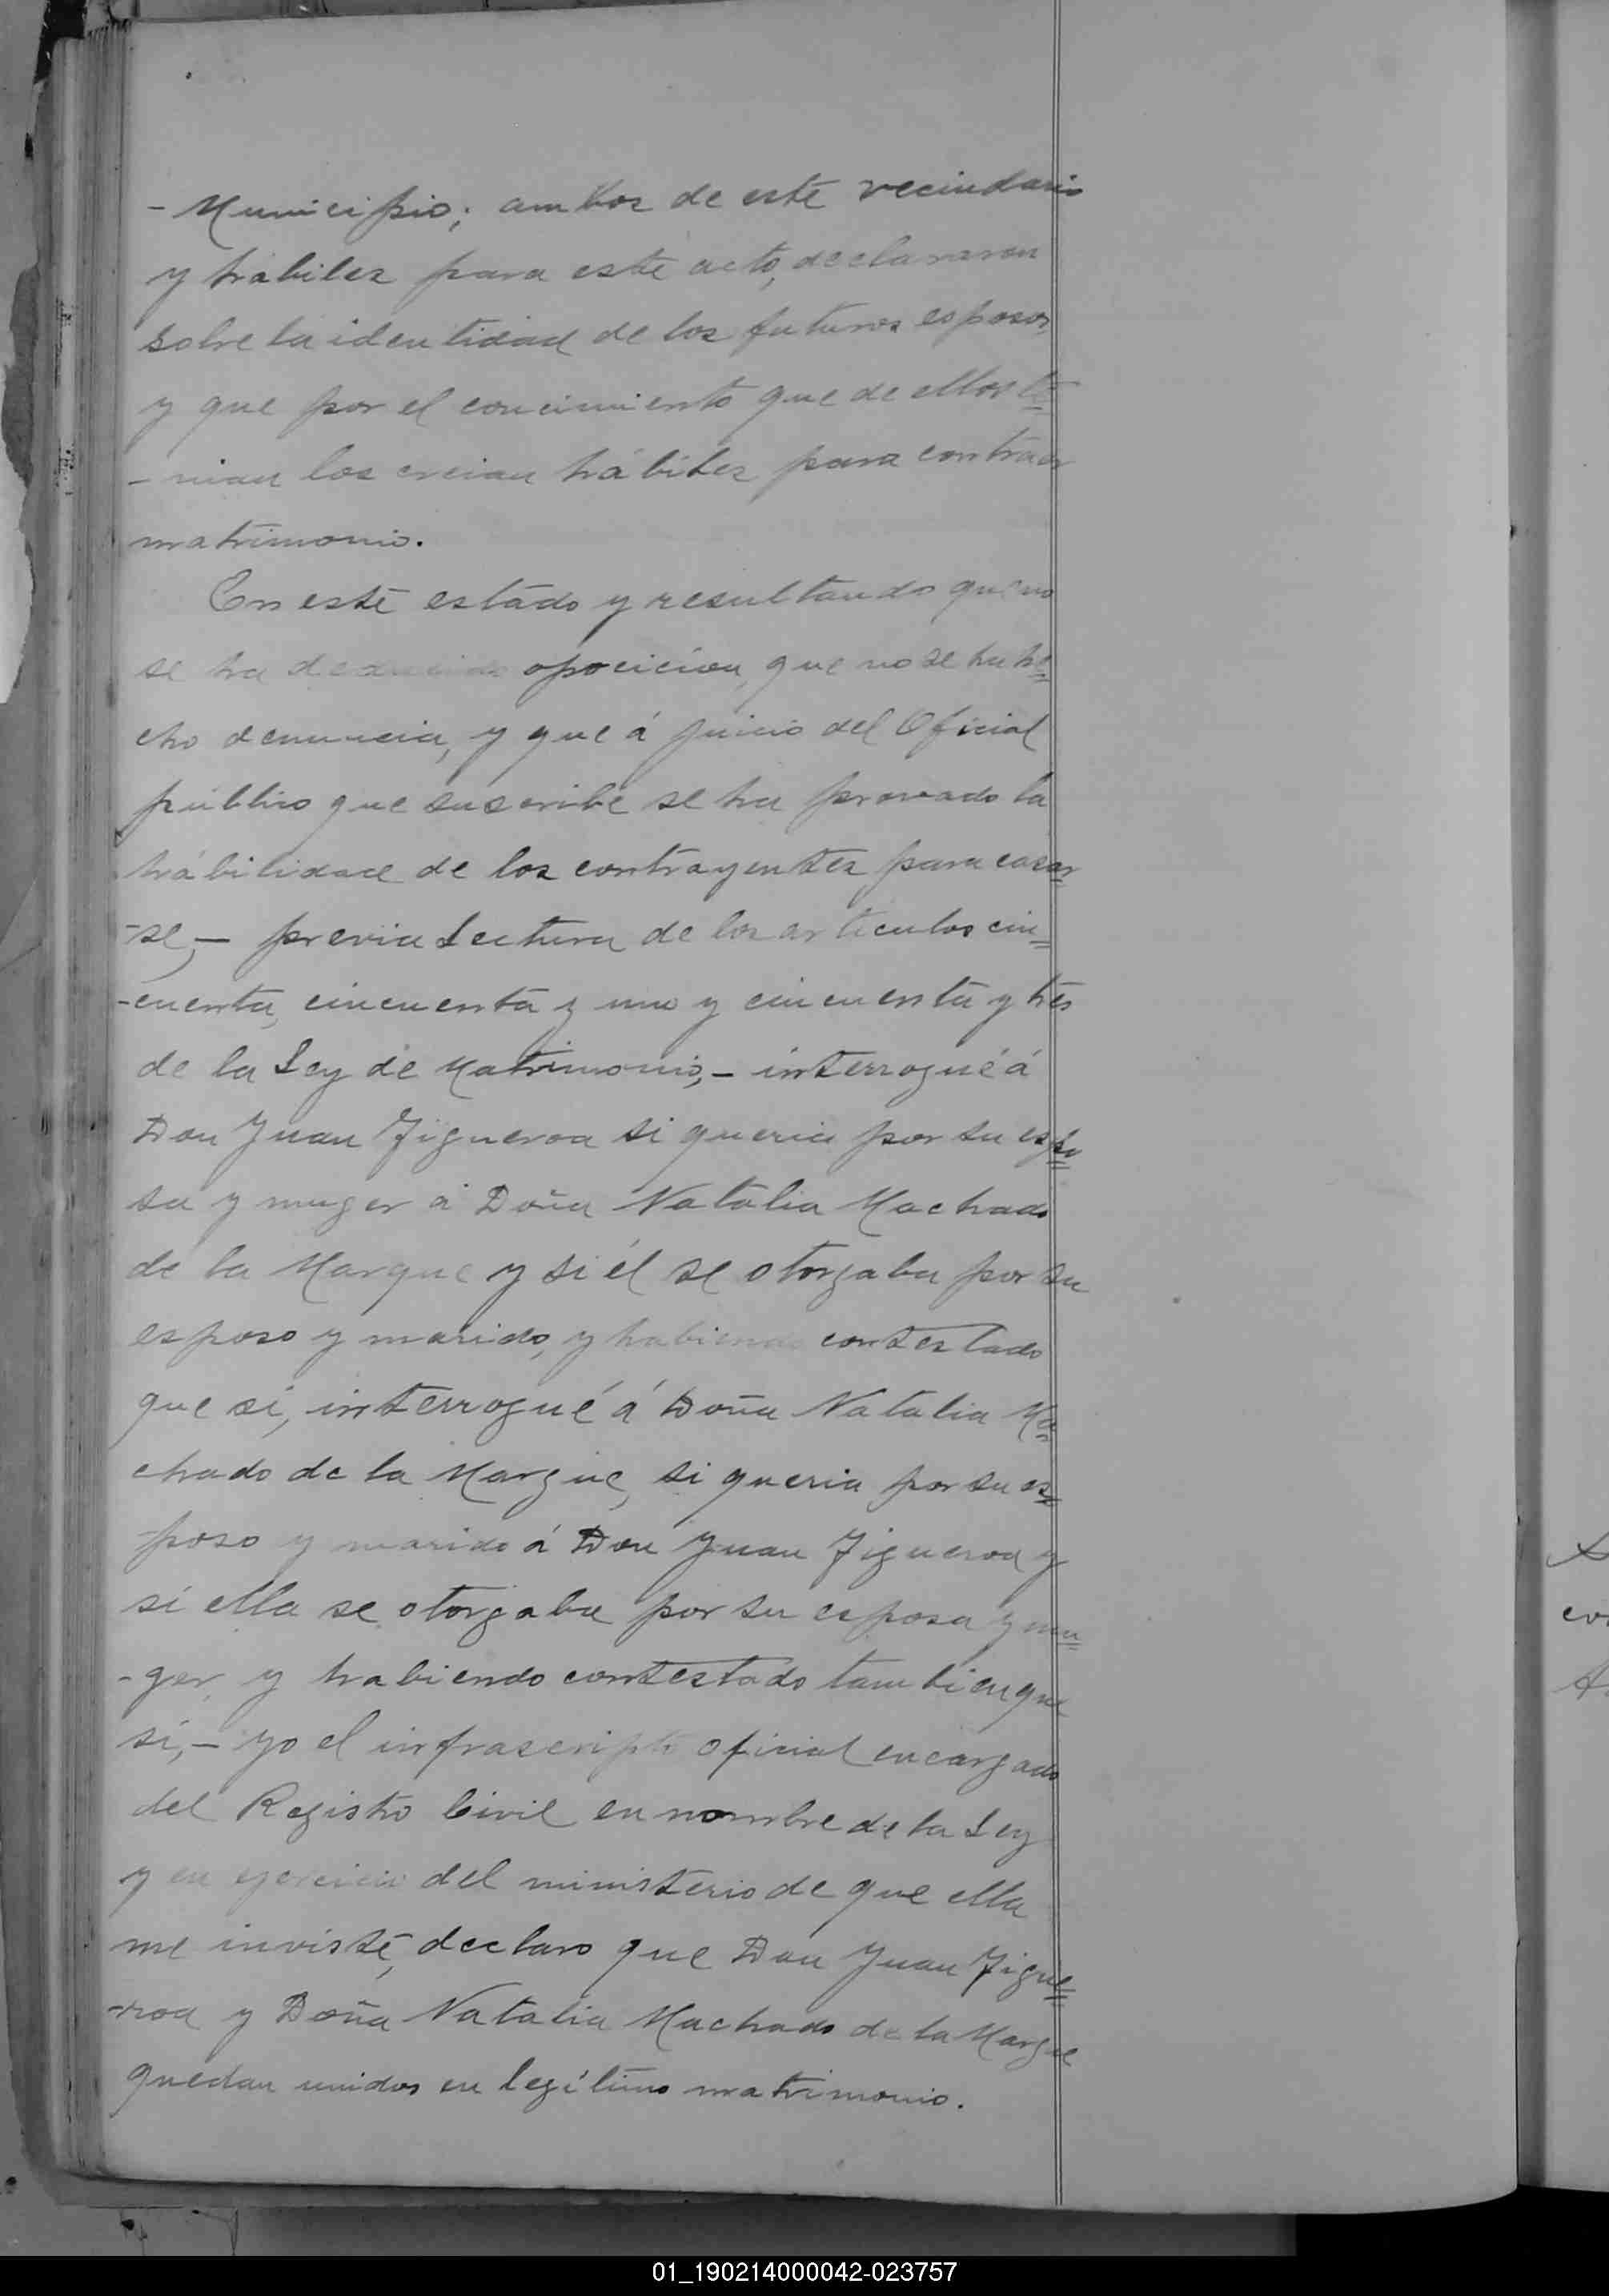 - Municipio; ambos de este vecindario
y hábiles para este acto, declararon
sobre la identidad de los futuros esposos,
y que por el conocimiento que de ellos te=
- nian los creian hábiles para contraer
matrimonio.
En este estado y resultando que no
se ha deducido oposicion, que no se ha he=
cho denuncia, y que á juicio del Oficial
público que suscribe se ha provado la
hábilidad de los contrayentes para casar=
-se,- previa Lectura de los articulos cin=
-cuenta, cincuenta y uno y cincuenta y tres
de la Ley de Matrimonio,- interrogué á
Don Juan Figueroa si queria por su espo=
sa y muger á Doña Natalia Machado
de la Marque y si él se otorgaba por su
esposo y marido, y habiendo contestado
que si, interrogué á Doña Natalia Ma=
chado de la Margue, si queria por su es=
poso y marido á Don Juan Figueroa y
si ella se otorgaba por su esposa y mu=
-ger, y habiendo contestado tambien que
si,- yo el infrascripto oficial encargado
del Registro Civil en nombre de la Ley
y en ejercicio del ministerio de que ella
me inviste, declaro que Don Juan Figue=
-roa y Doña Natalia Machado de la Margue
quedan unidos en legítimo matrimonio.
01_190214000042-023757